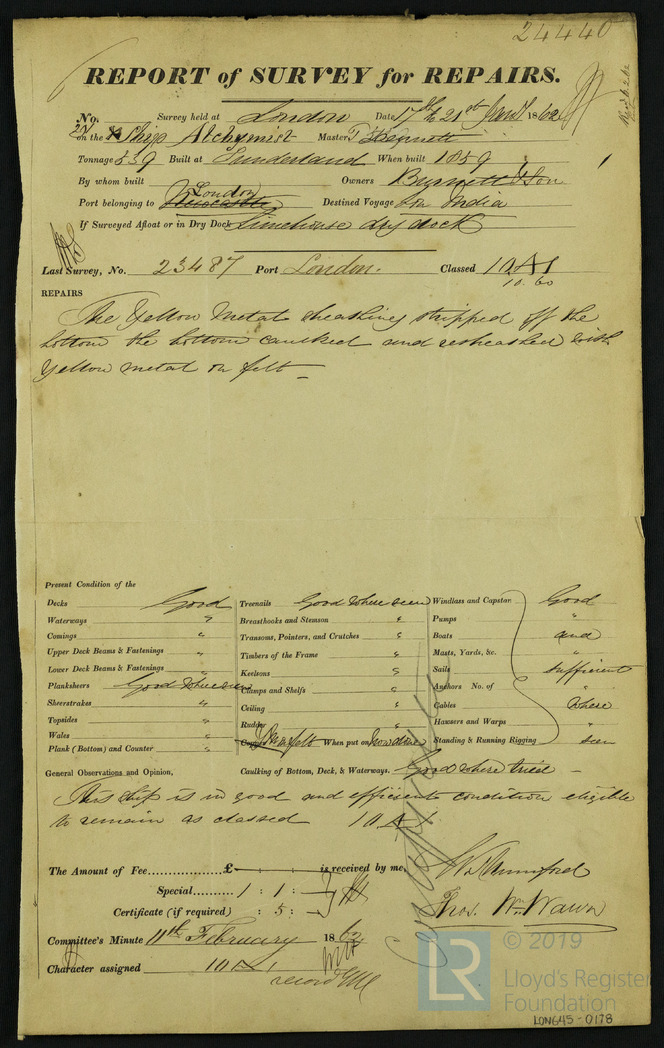 24440
REPORT of SURVEY for REPAIRS.
No. Survey held at London Date 17th & 21st Jany 1862
on the Ship Alchymist Master T Bennett
Tonnage 539 Built at Sunderland When built 1859
By whom built Owners Burnett & Son
London
Port belonging to Newcastle Destined Voyage India
If Surveyed Afloat or in Dry Dock Limehouse dry dock
Last Survey, No. 23487 Port London. Classed 10 A1
10.60
REPAIRS
The Yellow Metal sheathing stripped off the
bottom the bottom caulked and resheathed with
Yellow metal on felt
Present Condition of the
Decks Good Treenails Good where seen Windlass and Capstan Good
Waterways " Breasthooks and Stemson " Pumps "
Comings " Transoms, Pointers, and Crutches " Boats and
Upper Deck Beams & Fastenings " Timbers of the Frame " Masts, Yards, &c. "
Lower Deck Beams & Fastenings " Keelsons " Sails sufficient
Planksheers Good where seen Clamps and Shelfs " Anchors No. of "
Sheerstrakes " Ceiling " Cables where
Topsides " Rudder " Hawsers and Warps "
Wales " Copper YM on felt When put on now done Standing & Running Rigging seen
Plank (Bottom) and Counter "
General Observations and Opinion, Caulking of Bottom, Deck, & Waterways. Good where tried
This ship is in good and efficient condition eligible
to remain as classed 10 A1
The Amount of Fee £ is received by me,
Special 1 : 1 :
Certificate (if required) : 5 :
Thos. Wm. Wawn
Committee's Minute 11th February 1862
Character assigned 10 A1
record
© 2019
LR
Lloyd's Register
Foundation
LON645-0178